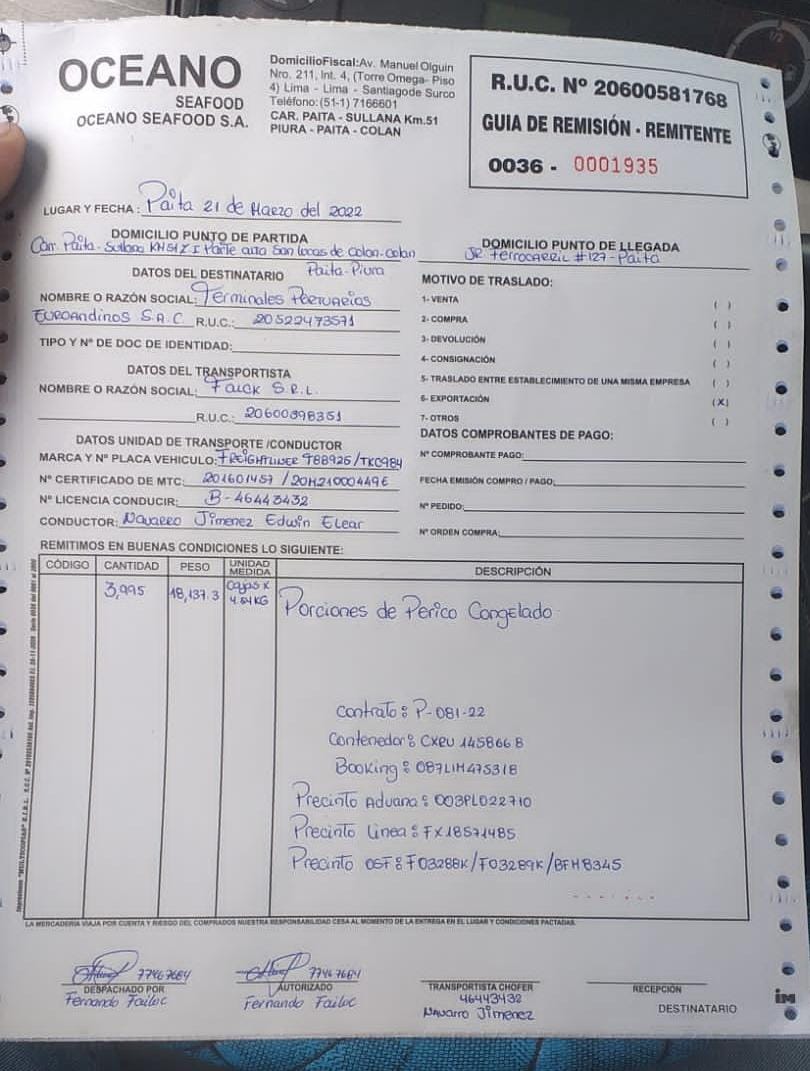 OCEANO
SEAFOOD
OCEANO SEAFOOD S.A.
DomicilioFiscal:Av. Manuel Olguin
Nro. 211, Int. 4, (Torre Omega- Piso
4) Lima - Lima - Santiagode Surco
Teléfono:(51-1) 7166601
CAR. PAITA - SULLANA Km.51
PIURA - PAITA - COLAN
R.U.C. Nº 20600581768
GUIA DE REMISIÓN - REMITENTE
0036 - 0001935
LUGAR Y FECHA: Paita 21 de Marzo del 2022
DOMICILIO PUNTO DE PARTIDA
Carr. Paita-Sullana KM51 Z I Parte alta San Lucas de Colan-Colan
Paita-Piura
DOMICILIO PUNTO DE LLEGADA
JR Ferrocarril #127-Paita
DATOS DEL DESTINATARIO
NOMBRE O RAZÓN SOCIAL: Terminales Portuarios
Euroandinos S.A.C. R.U.C.: 20522473571
TIPO Y Nº DE DOC DE IDENTIDAD:
DATOS DEL TRANSPORTISTA
NOMBRE O RAZÓN SOCIAL: Faick S.R.L.
R.U.C.: 20600898351
DATOS UNIDAD DE TRANSPORTE /CONDUCTOR
MARCA Y Nº PLACA VEHICULO: FREIGHTLINER T8B925/TKC984
Nº CERTIFICADO DE MTC: 201601457 / 20M21000449E
Nº LICENCIA CONDUCIR: B-46443432
CONDUCTOR: Navarro Jimenez Edwin Elear
MOTIVO DE TRASLADO:
1- VENTA ( )
2- COMPRA ( )
3- DEVOLUCIÓN ( )
4- CONSIGNACIÓN ( )
5- TRASLADO ENTRE ESTABLECIMIENTO DE UNA MISMA EMPRESA ( )
6- EXPORTACIÓN (X)
7- OTROS ( )
DATOS COMPROBANTES DE PAGO:
Nº COMPROBANTE PAGO:
FECHA EMISIÓN COMPRO / PAGO:
Nº PEDIDO:
Nº ORDEN COMPRA:
REMITIMOS EN BUENAS CONDICIONES LO SIGUIENTE:
CÓDIGO CANTIDAD PESO UNIDAD MEDIDA DESCRIPCIÓN
3,995 18,137.3 Cajas x 4.54KG Porciones de Perico Congelado
Contrato: P-081-22
Contenedor: CXRU 145866 8
Booking: 087LIM475318
Precinto Aduana: 003PL022710
Precinto Linea: FX18571485
Precinto OSF: F03288K/F03289K/BFH8345
LA MERCADERIA VIAJA POR CUENTA Y RIESGO DEL COMPRADOS NUESTRA RESPONSABILIDAD CESA AL MOMENTO DE LA ENTREGA EN EL LUGAR Y CONDICIONES PACTADAS.
77467684
DESPACHADO POR
Fernando Failoc
77467684
AUTORIZADO
Fernando Failoc
TRANSPORTISTA CHOFER
46443432
Navarro Jimenez
RECEPCIÓN
DESTINATARIO
im